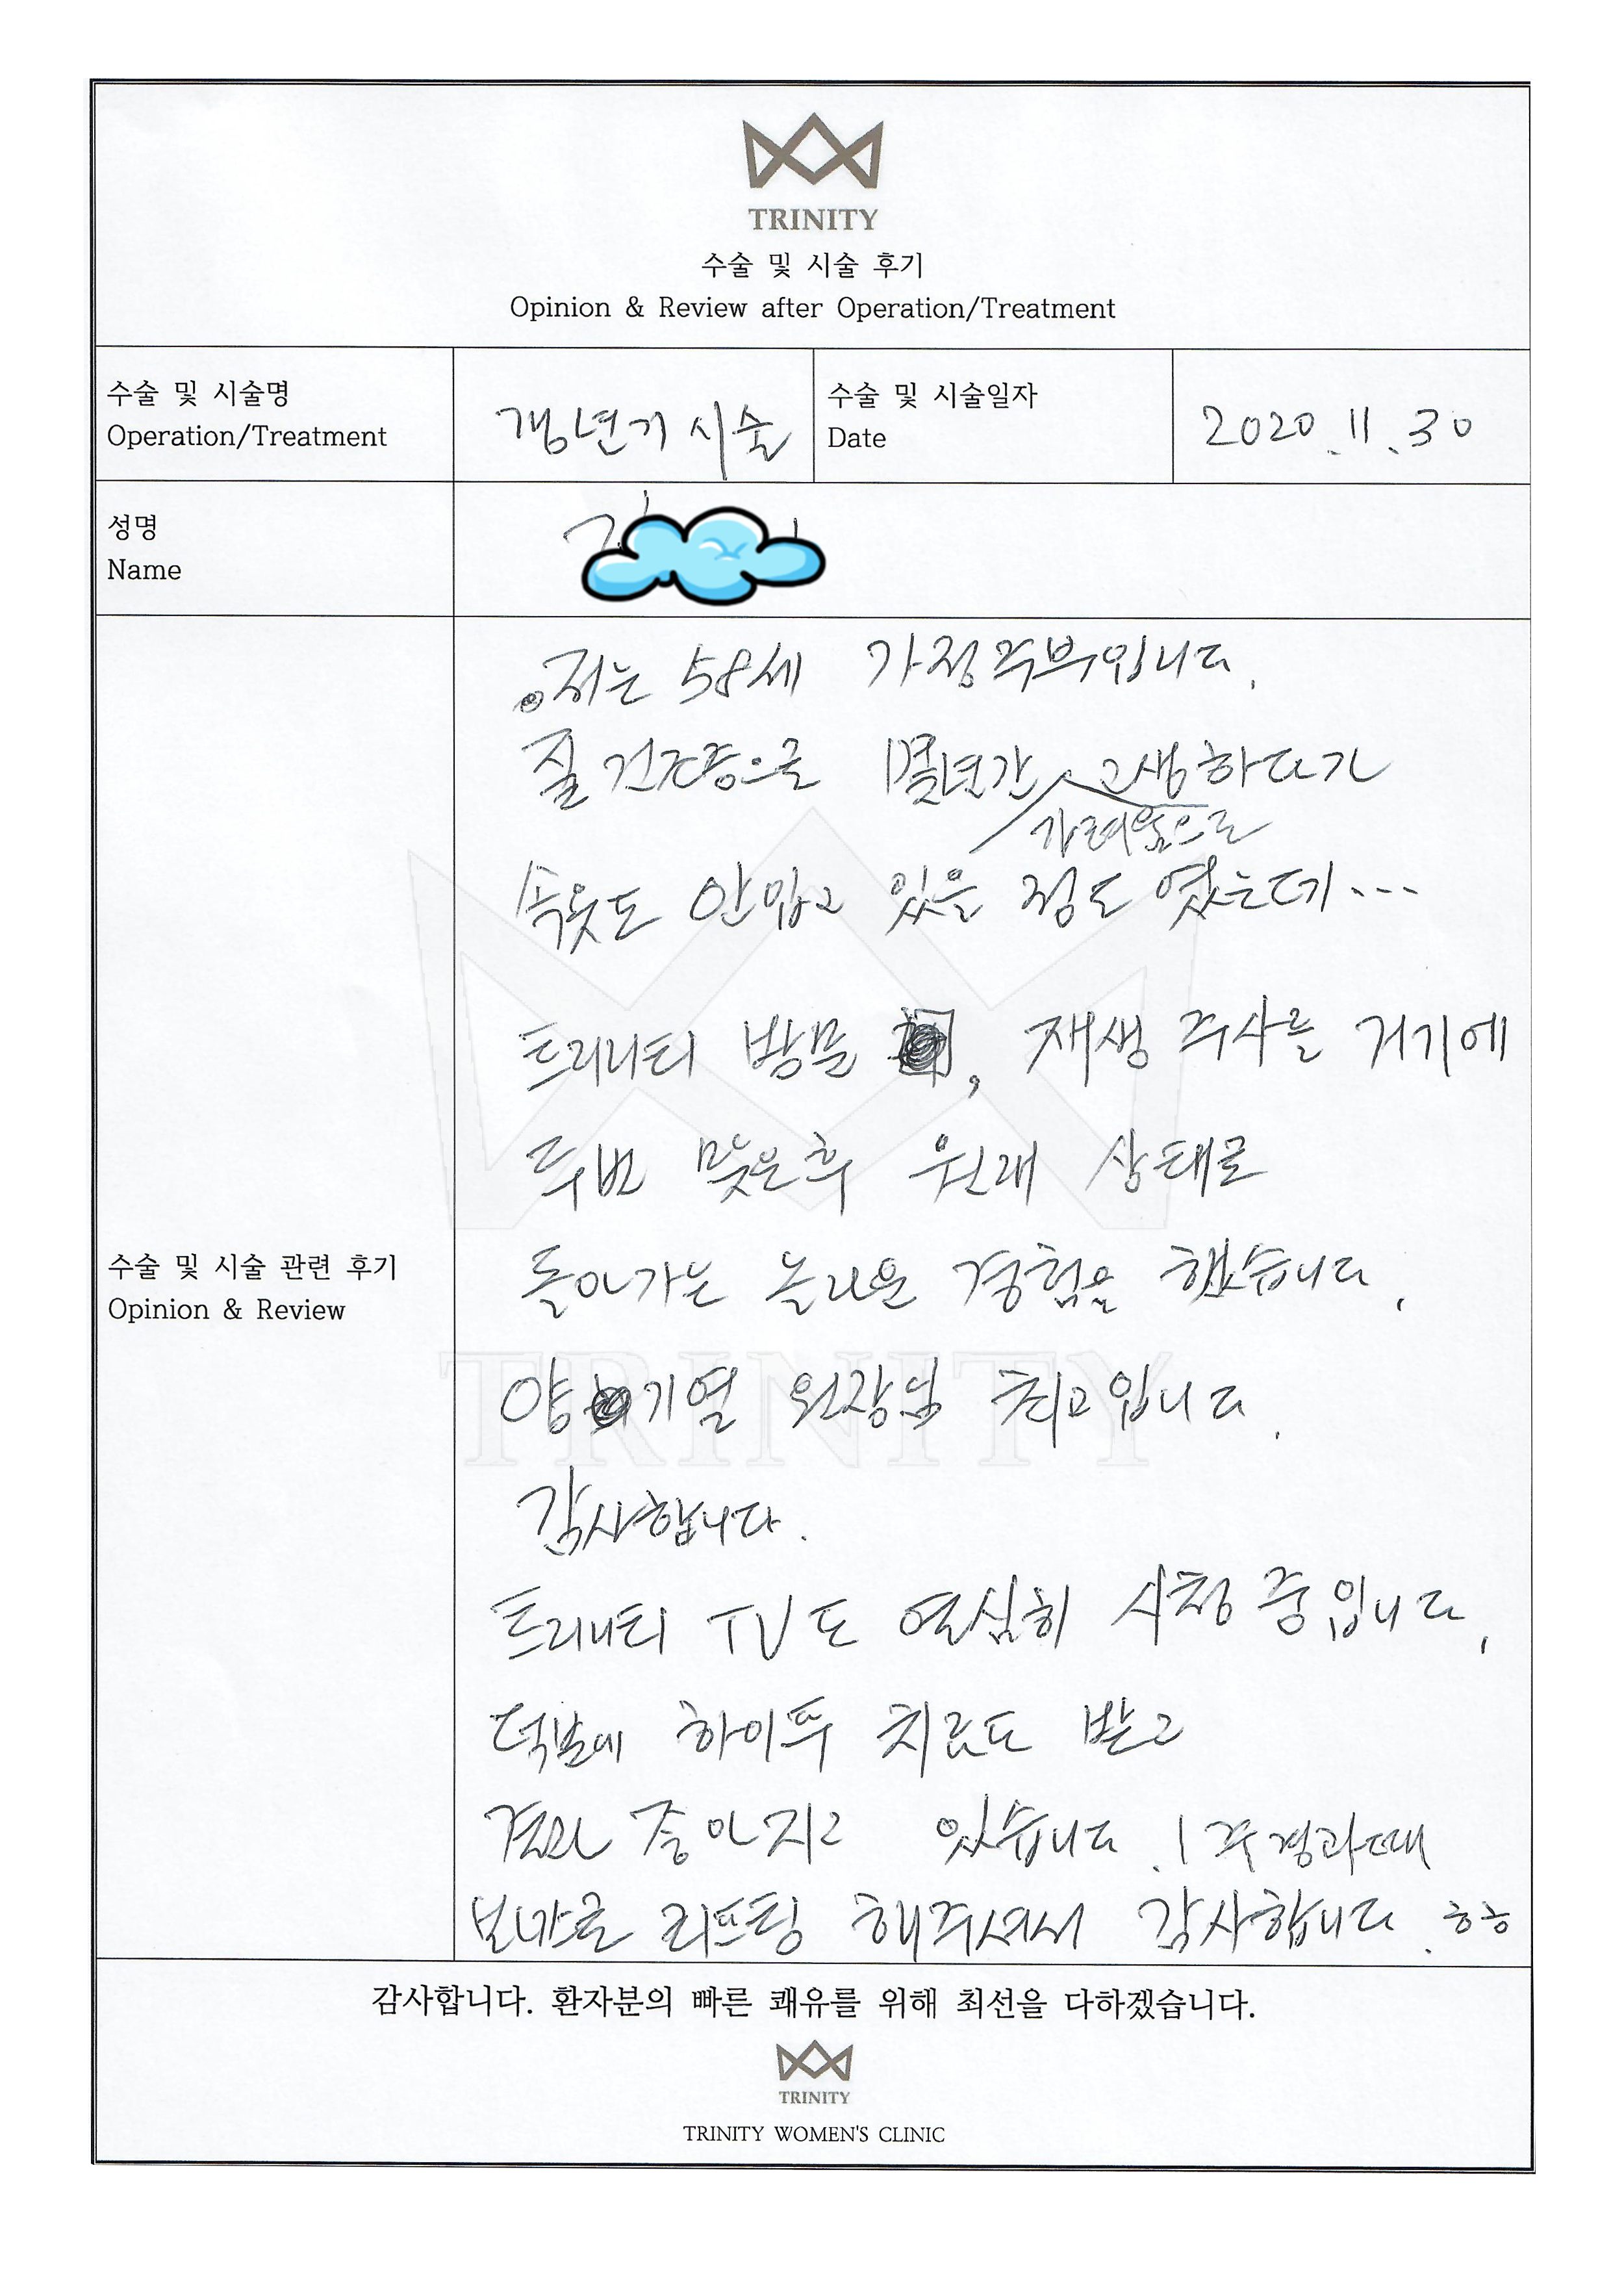 TRINITY
수술 및 시술 후기
Opinion & Review after Operation/Treatment
수술 및 시술명
Operation/Treatment
갱년기 시술
수술 및 시술일자
Date
2020.11.30
성명
Name
저는 58세 가정주부입니다.
질 건조증으로 몇년간 고생하다가
가려움으로
속옷도 안입고 있을 정도 였는데...
트리니티 방문, 재생 주사를 거기에
두번 맞은후 원래 상태로
돌아가는 놀라운 경험을 했습니다.
수술 및 시술 관련 후기
Opinion & Review
양기열 원장님 최고입니다.
감사합니다.
트리니티 TV도 열심히 시청 중입니다.
덕분에 하이푸 치료도 받고
결과 좋아지고 있습니다. 1주 경과때
보너스로 리프팅 해주셔서 감사합니다.
감사합니다. 환자분의 빠른 쾌유를 위해 최선을 다하겠습니다.
TRINITY
TRINITY WOMEN'S CLINIC
TRINITY